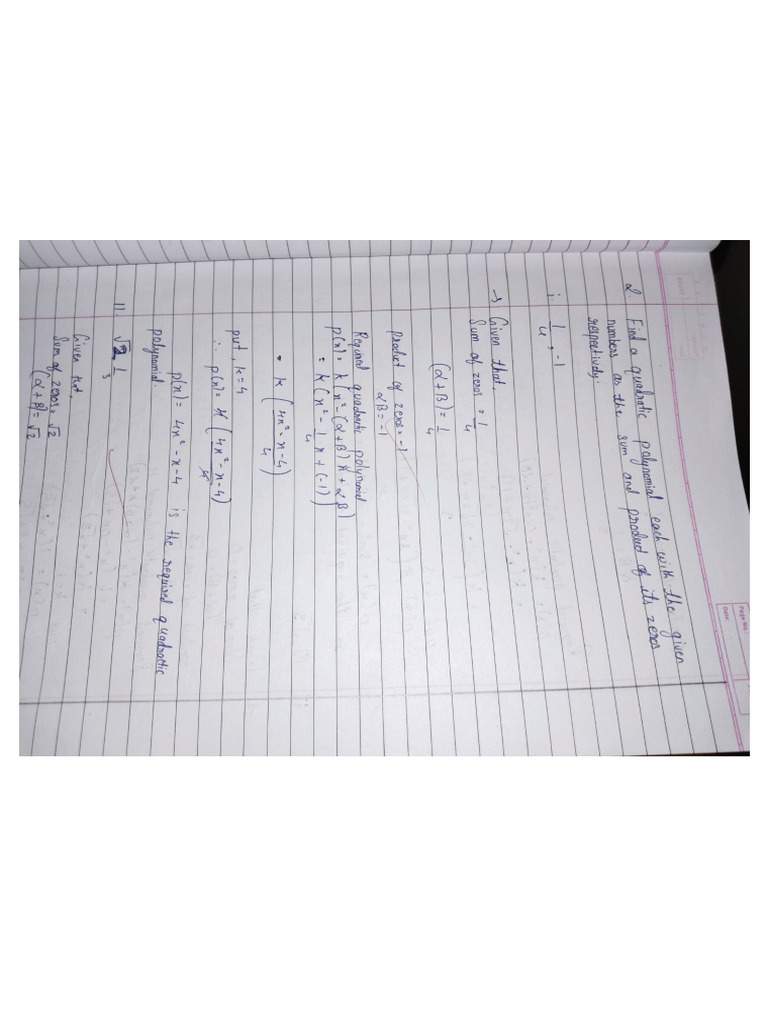 Page No.
Date:
2 Find a quadratic polynomial each with the given
numbers as the sum and product of its zeros
respectively.
i 1/4, -1
→ Given that,
Sum of zeros = 1/4
(α+β) = 1/4
product of zeros = -1
αβ = -1
Required quadratic polynomial
p(x) = k(x² - (α+β)x + αβ)
= k(x² - 1/4 x + (-1))
= k((4x² - x - 4)/4)
put, k = 4
∴ p(x) = 4((4x² - x - 4)/4)
p(x) = 4x² - x - 4 is the required quadractic
polynomial.
11 √2 1/3
Given that
Sum of zeros = √2
(α+β) = √2